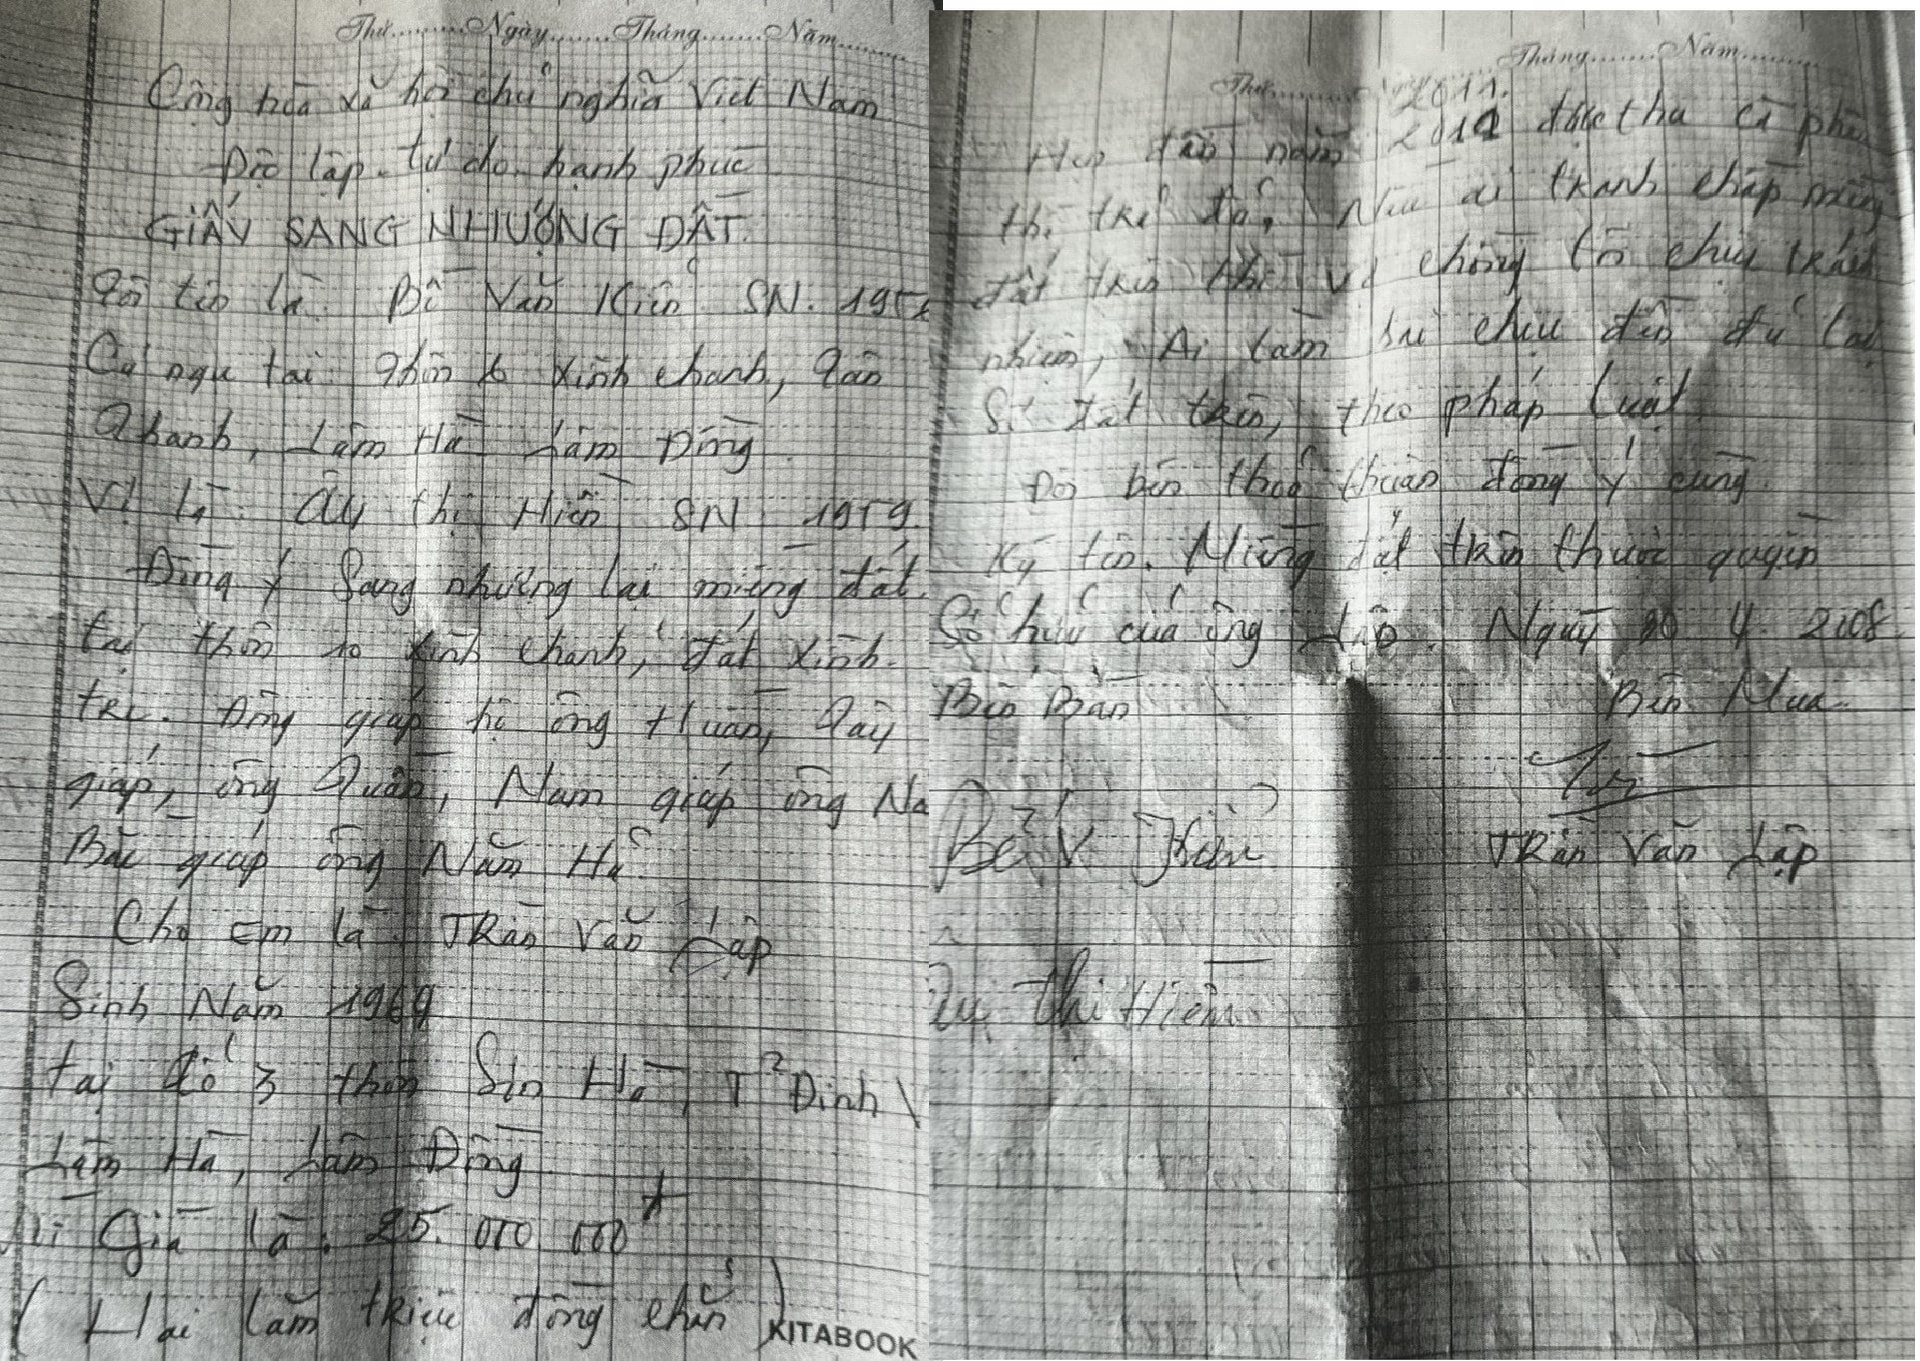 Thứ........Ngày.......Tháng.......Năm.......
Cộng hòa xã hội chủ nghĩa Việt Nam
Độc lập. tự do. hạnh phúc
GIẤY SANG NHƯỢNG ĐẤT.
Tôi tên là: Bế Văn Kiên SN. 195
Cư ngụ tại: Thôn 6 Xình chanh, Tân
Thanh, Lâm Hà Lâm Đồng
Vợ là: Âu thị Hiền SN 1959.
Đồng ý Sang nhượng lại miếng đất.
tại thôn 10 Xình chanh, đất Xình.
trì. Đông giáp hộ ông Huân, Tây
giáp, ông Quân, Nam giáp ông Na
Bắc giáp ông Năm Hà
Cho em là TRần Văn Lập
Sinh Năm 1969
tại đố 3 thôn Sìn Hà, T² Đinh \
Lâm Hà, Lâm Đồng
Giá là: 25.000 000đ
( Hai lăm triệu đồng chẵn )
KITABOOK
Thứ........ Tháng.......Năm.......
2011.
Hẹn đến năm 2011 được thu cà phê
thì trả đủ, Nếu ai tranh chấp miếng
đất trên thì vợ chồng tôi chịu trách
nhiệm, Ai làm sai chịu đền đủ lại
Số đất trên, theo pháp luật.
Đôi bên thoả thuận đồng ý cùng
Ký tên. Miếng đất trên thuộc quyền
Sở hữu của ông Lập. Ngày 20 4 2008
Bên Bán Bên Mua.
Bế V Kiên
TRần Văn Lập
Âu thị Hiền